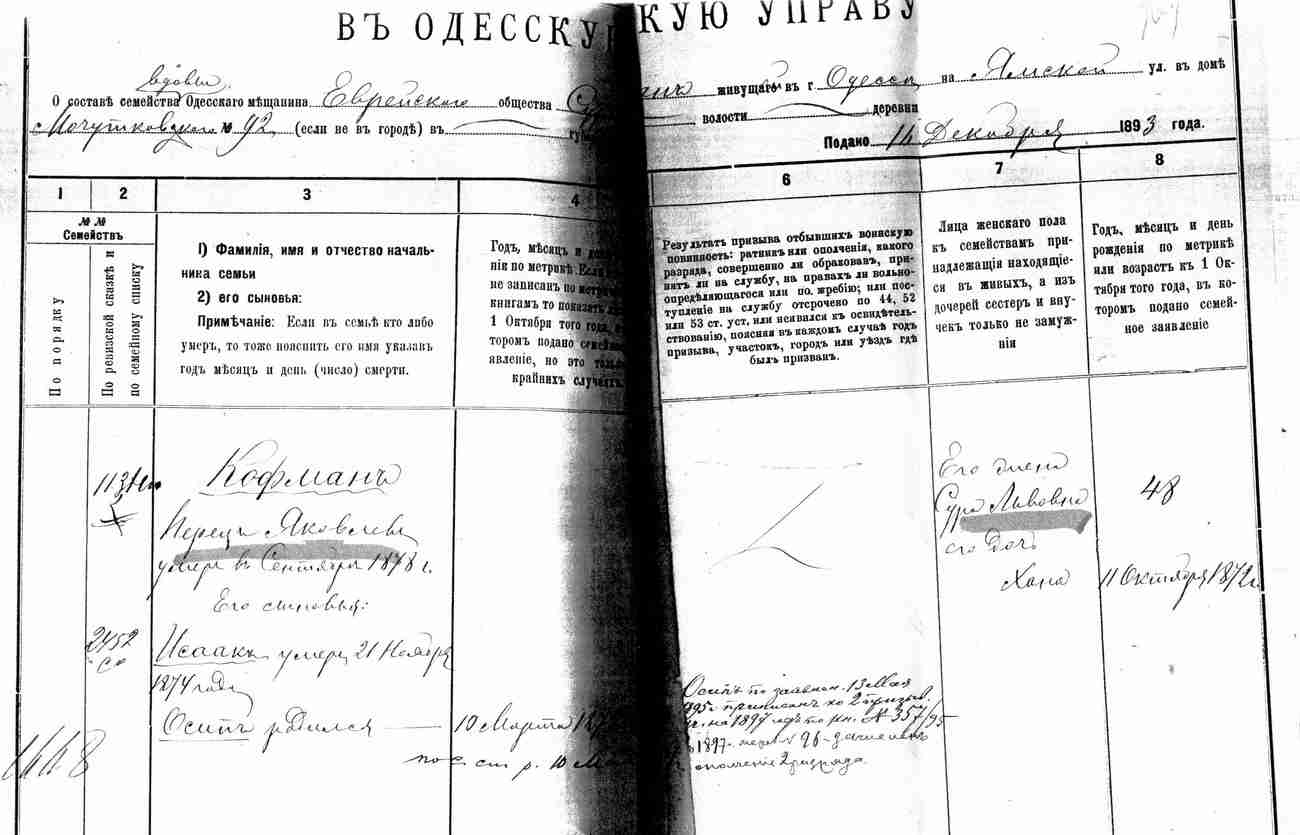 ВЪ ОДЕССКУ КУЮ УПРАВУ
вдовы
О составѣ семейства Одесскаго мѣщанина Еврейскаго общества живущаго въ г Одессѣ на Ямской ул. въ домѣ
№ 92 (если не въ городѣ) въ губ волости деревни
Подано Декабря 1893 года.
1 2 3 4 6 7 8
№ №
Семействъ
По порядку
По ревизской сказкѣ и
по семейному списку
1) Фамилія, имя и отчество началь-
ника семьи
2) его сыновья:
Примѣчаніе: Если въ семьѣ кто либо
умеръ, то тоже пояснить его имя указавъ
годъ мѣсяцъ и день (число) смерти.
Годъ, мѣсяцъ и д
нія по метрикѣ. Если
не записанъ по метр
книгамъ то показ
1 Октября того года,
торомъ подано семей
явленіе, но это толь
крайнихъ случаяхъ.
Результатъ призыва отбывшихъ воинскую
повинность: ратникъ или ополченія, какого
разряда, совершенно ли обракованъ, при-
нятъ ли на службу, на правахъ ли вольно-
опредѣляющагося или по жребію; или пос-
тупленіе на службу отсрочено по 44, 52
или 53 ст. уст, или неявился къ освидѣтель-
ствованію, поясняя въ каждомъ случаѣ годъ
призыва, участокъ, городъ или уѣздъ гдѣ
былъ призванъ.
Лица женскаго пола
къ семействамъ при-
надлежащія находящіе-
ся въ живыхъ, а изъ
дочерей сестеръ и вну-
чекъ только не замуж-
нія
Годъ, мѣсяцъ и день
рожденія по метрикѣ
или возрастъ къ 1 Ок-
тября того года, въ ко-
торомъ подано семей-
ное заявленіе
Кофманъ
Перецъ Яковлевъ
умеръ въ Сентябрѣ 1878 г.
Его сыновья:
2452
Исаакъ умеръ 21 Ноября
1874 года
Осипъ родился — 10 Марта 187
по с. сп. р. 10 Ма
1668
Осипъ по заявлен. 13 Мая
приписанъ ко 2 призыв.
на 1897 годъ по кн. № 357/95
1897 № 96 зачисленъ
ополченіе 2 разряда.
Его жена
Сура Львовна
его дочь
Хана
48
11 Октября 1872 г.